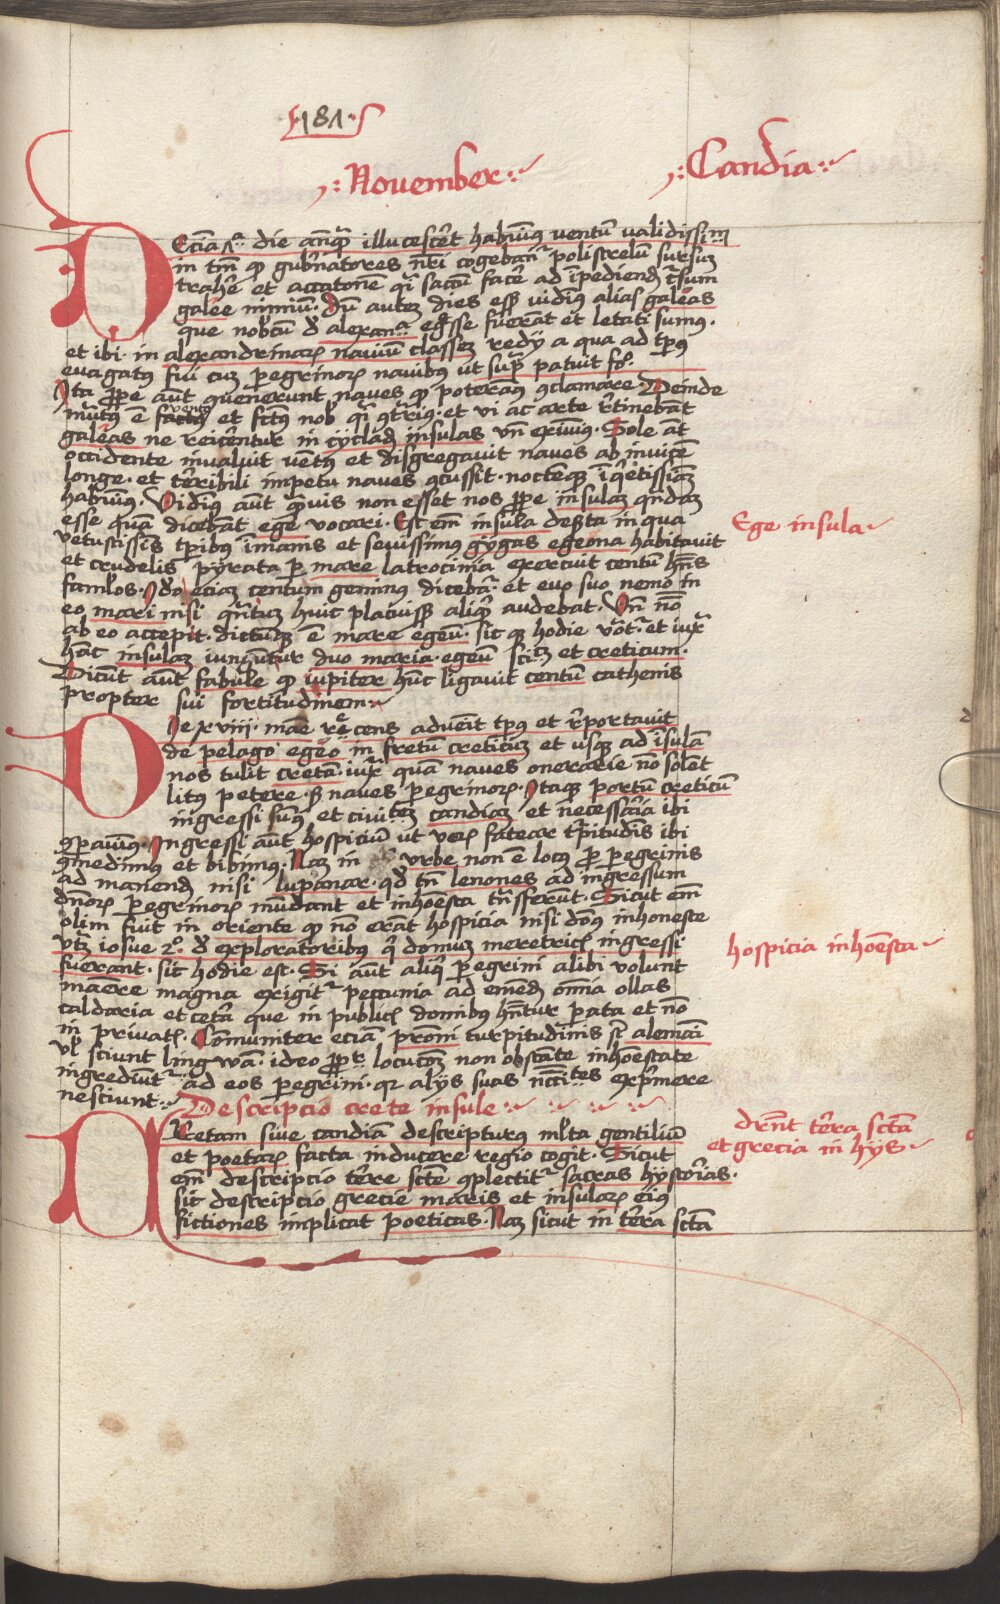 ·181·
·: November :·
·: Candia :·
DEcia 7ᵃ die anqᵃ illucesceret habuimus ventū validissim
in tm̄ qp gubernatores nr̄i cogebant² polistrelū sursum
trahere et accatonē qᵃsi saccū facere ad īpediend cursum
galee nimiū. Dū autem dies esset vidimus alias galeas
que nobcū de alexanᵃ egresse fuerāt et letati sumus.
et ibi in alexandrinarum naviū classem redij a qua ad tp̄us
evagatus fui cum peregrinorum navibus ut supra patuit fo.
Ita prope aut quenerunt naves qp poteramus conclamare. Deinde
mutatus ē ventus et factus nob qᵃsi contrarius. et vi ac arte retinebāt
galeas ne reicerentur in cyclad insulas vn̄ exivimus. Sole aut
occidente invaluit ventus et disgregavit naves ab invicē
longe. et terribili impetu naves concussit. noctemque īquietissimā
habuimus. Vidimus aut quamvis non esset nos prope insulam quandam
esse quā dicebāt ege vocari. Est em̄ insula deserta in qua
vetustissimis tp̄ibus īmanis et sevissimus gygas egeona habitavit
et crudelis pyrata per mare latrocinia exercuit centū hn̄s
famlos. Ideo eciam centum geminus dicebat². et evo suo nemo in
eo mari nisi quantum huic placuisset aliquid audebat. Vn̄ nō
ab eo accepit. dictumque ē mare egeū. sic qp hodie vocat². et iuxᵃ
hāc insulam iungūtur duo maria. egeū scitz et creticum.
Dicūt aut fabule qp iupiter hūc ligavit centū cathenis
propter sui fortitudinem
Die xviii. mane recens advenit tp̄us et reportavit
de pelago egeo in fretū creticum et usque ad insulā
nos tulit cretā. iuxᵃ quā naves onerarie nō solent
litus petere. sed naves peregrinorum. Itaque portū creticū
ingressi sumus et civitatem candiam et necessaria ibi
comparavimus. Ingressi aut hospiciū ut verum fatear turpitudinis ibi
comedimus et bibimus. Nam in urbe non ē locus pro peregrinis
ad manend nisi lupanar. qd tn̄ lenones ad ingressum
dn̄orum peregrinorum mūdant et inhonesta trāsferunt. Sicut em̄
olim fuit in oriente qp nō erāt hospicia nisi domus inhoneste
utz iosue 2º. de exploratoribus qui domum meretricis ingressi
fuerant. sic hodie est. Si aut aliqui peregrini alibi volunt
manere magna exigit² peccunia ad emend omnia ollas
caldaria et cetera que in publicis domibus habentur parata et nō
in privatis. Communiter eciam promi turpitudinis sunt alemani
vel sciunt lingwam. ideo propter locucionem non obstante inhonestate
ingrediūt² ad eos peregrini. qr alijs suas necessitates exprimere
nesciunt
Descripcio crete insule
CRetam sive candiā descripturus multa gentiliū
et poetarum facta inducere regio cogit. Sicut
em̄ descripcio terre sctē complectit² sacras hystorias.
sic descripcio grecie maris et insularum eius
fictiones implicat poeticas. Nam sicut in terra sctā
Ege insula
hospicia inhonesta
drn̄t terra sctā
et grecia in hijs